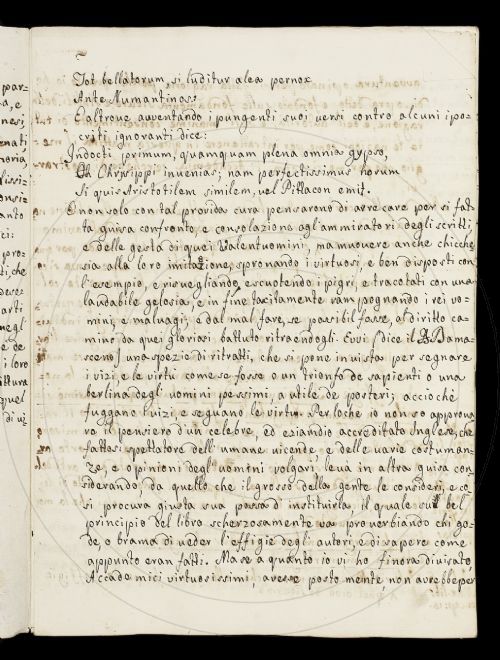 par-
a, e
nesi,
enati,
noria,
lissi-
onsiz
anto
ci:
proz
ti, che
dese-
arti
uegl'
le de
i loro
ittura
zquel
di uz
Tot bellatorum, si luditur alea pernox
Ante Numantinos:
E altrove avventando i pungenti suoi versi contro alcuni ipo-
criti ignoranti dice:
Indocti primum, quamquam plena omnia gypso,
Chrysippi invenias; nam perfectissimus horum
Si quis Aristotilem similem, vel Pittacon emit.
E non solo con tal provida cura pensarono di arrecare per sì fat-
ta guisa confronto, e consolazione agl'ammiratori degli scritti
e delle gesta di quei Valentuomini, ma muovere anche chicche
sia alla loro imitazione, spronando i virtuosi, e ben disposti con
l'esempio, e risvegliando, e scuotendo i pigri, e tracotati con una
laudabile gelosia, e in fine tacitamente rampognando i rei uo-
mini, e malvagi, e dal mal fare, se possibil fosse, al diritto ca-
mino da quei gloriosi battuto ritraendogli. Evvi (dice il Dama-
sceno) una spezie di ritratti, che si pone in vista per segnare
i vizi, e le virtù come se fosse o un trionfo de sapienti o una
berlina degli uomini pessimi, a utile de posteri; acciochè
fuggano i vizi, e seguano le virtù. Per loche io non so approva
re il pensiero d'un celebre, ed eziandio accreditato Inglese, che
fattosi spettatore dell'umane vicende, e delle varie costuman-
ze, e opinioni degl'uomini volgari, leva in altra guisa con
siderando, da quello che il grosso della gente le consideri, e co
si procura giusta sua possa d'instituirla, il quale sul bel
principio del libro scherzosamente va proverbiando chi go-
de, o brama di veder l'effigie degli autori, e di sapere come
appunto eran fatti. Ma se a quanto io vi ho finora divisato,
Accademici virtuosissimi, avesse posto mente, non avrebbe per